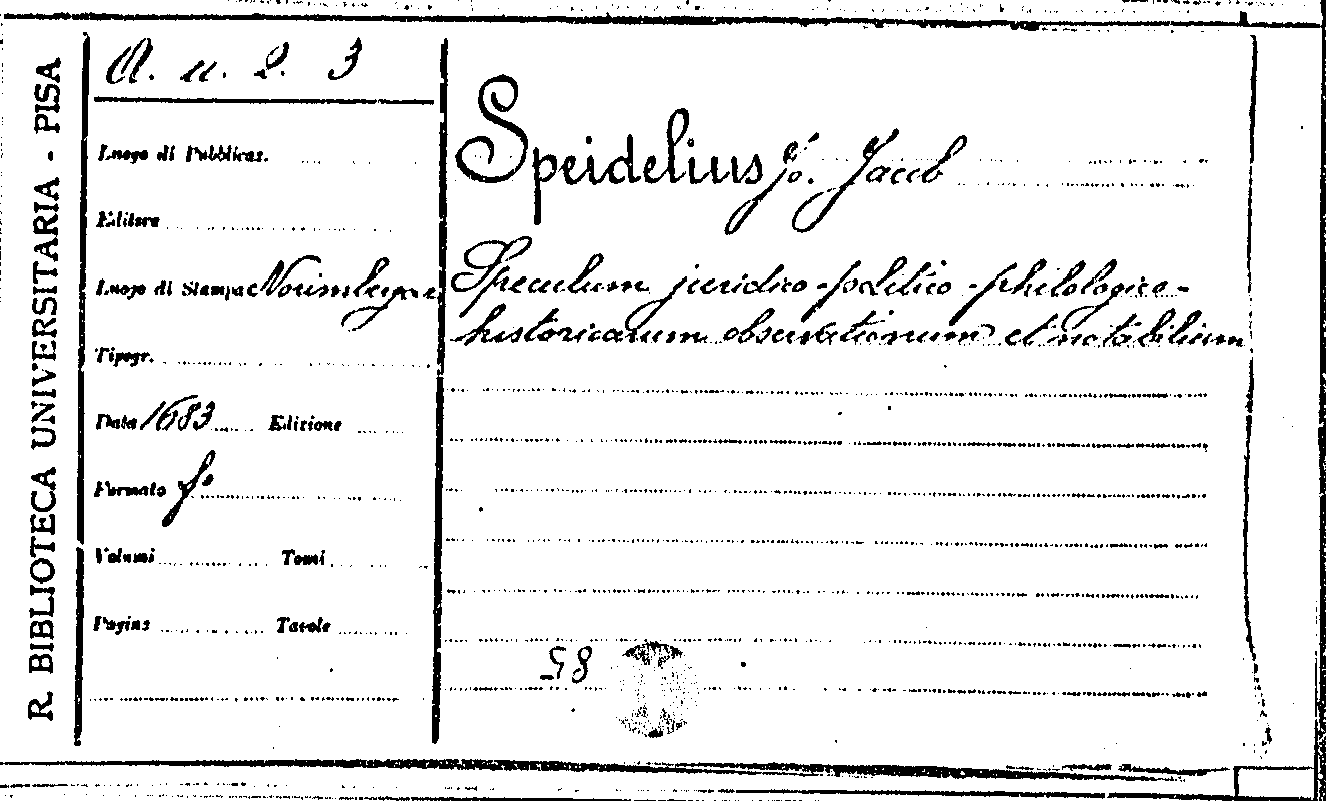 R. BIBLIOTECA UNIVERSITARIA - PISA
A. u. 2. 3
Luogo di Pubblicaz.
Editore
Luogo di Stampa Norimbergae
Tipogr.
Data 1683 Edizione
Formato f°
Volumi Tomi
Pagine Tavole
Speidelius Jo. Jacob
Speculum juridico-politico-philologico-
historicarum observationum et notabilium
58